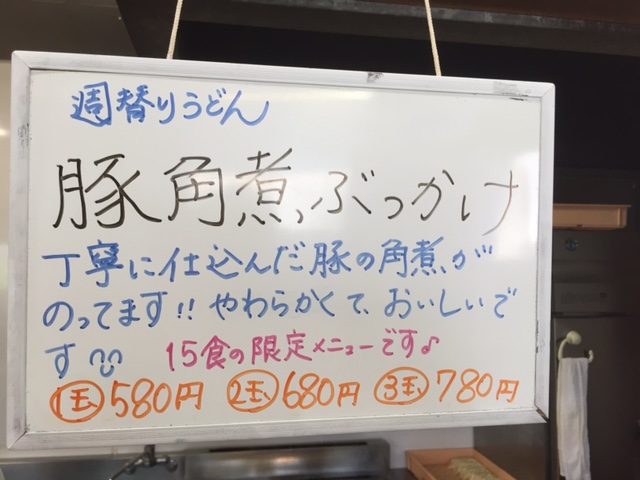 週替りうどん
豚角煮ぶっかけ
丁寧に仕込んだ豚の角煮が
のってます!!やわらかくて、おいしいで
す
15食の限定メニューです♪
1玉580円 2玉680円 3玉780円